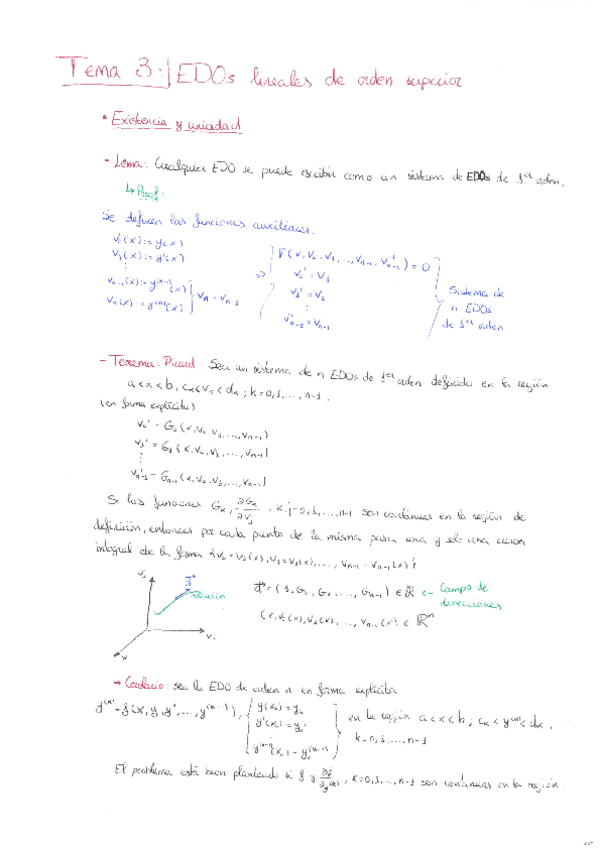 Tema 3: EDOs lineales de orden superior
• Existencia y unicidad
- Lema: Cualquier EDO se puede escribir como un sistema de EDOs de 1er orden.
↳ Proof:
Se definen las funciones auxiliares:
v₀(x) := y(x)
v₁(x) := y'(x)
⋮
vₙ₋₁(x) := y⁽ⁿ⁻¹⁾(x)
vₙ(x) := y⁽ⁿ⁾(x)
⇒
F(x, v₀, v₁, ..., vₙ₋₁, v'ₙ₋₁) = 0
v₀' = v₁
v₁' = v₂
⋮
v'ₙ₋₂ = vₙ₋₁
Sistema de
n EDOs
de 1er orden
- Teorema: Picard: Sea un sistema de n EDOs de 1er orden definido en la región
a < x < b, cₖ < vₖ < dₖ ; k = 0, 1, ..., n-1.
(en forma explícita)
v₀' = G₀(x, v₀, v₁, ..., vₙ₋₁)
v₁' = G₁(x, v₀, v₁, ..., vₙ₋₁)
⋮
v'ₙ₋₁ = Gₙ₋₁(x, v₀, v₁, ..., vₙ₋₁)
Si las funciones Gₖ, ∂Gₖ/∂vⱼ, k, j = 0, 1, ..., n-1 son continuas en la región de
definición, entonces por cada punto de la misma pasa una y solo una curva
integral de la forma {v₀ = v₀(x), v₁ = v₁(x), ..., vₙ₋₁ = vₙ₋₁(x)}
solución
d⃗ = (1, G₀, G₁, ..., Gₙ₋₁) ∈ ℝ ← Campo de
direcciones
(x, v₀(x), v₁(x), ..., vₙ₋₁(x)) ∈ ℝⁿ
→ Corolario: sea la EDO de orden n en forma explícita
y⁽ⁿ⁾ = f(x, y, y', ..., y⁽ⁿ⁻¹⁾),
y(x₀) = y₀
y'(x₀) = y₀'
y⁽ⁿ⁻¹⁾(x₀) = y₀⁽ⁿ⁻¹⁾
en la región a < x < b ; cₖ < y⁽ᵏ⁾ < dₖ.
k = 0, 1, ..., n-1
El problema está bien planteado si f y ∂f/∂y⁽ᵏ⁾, k = 0, 1, ..., n-1 son continuas en la región.